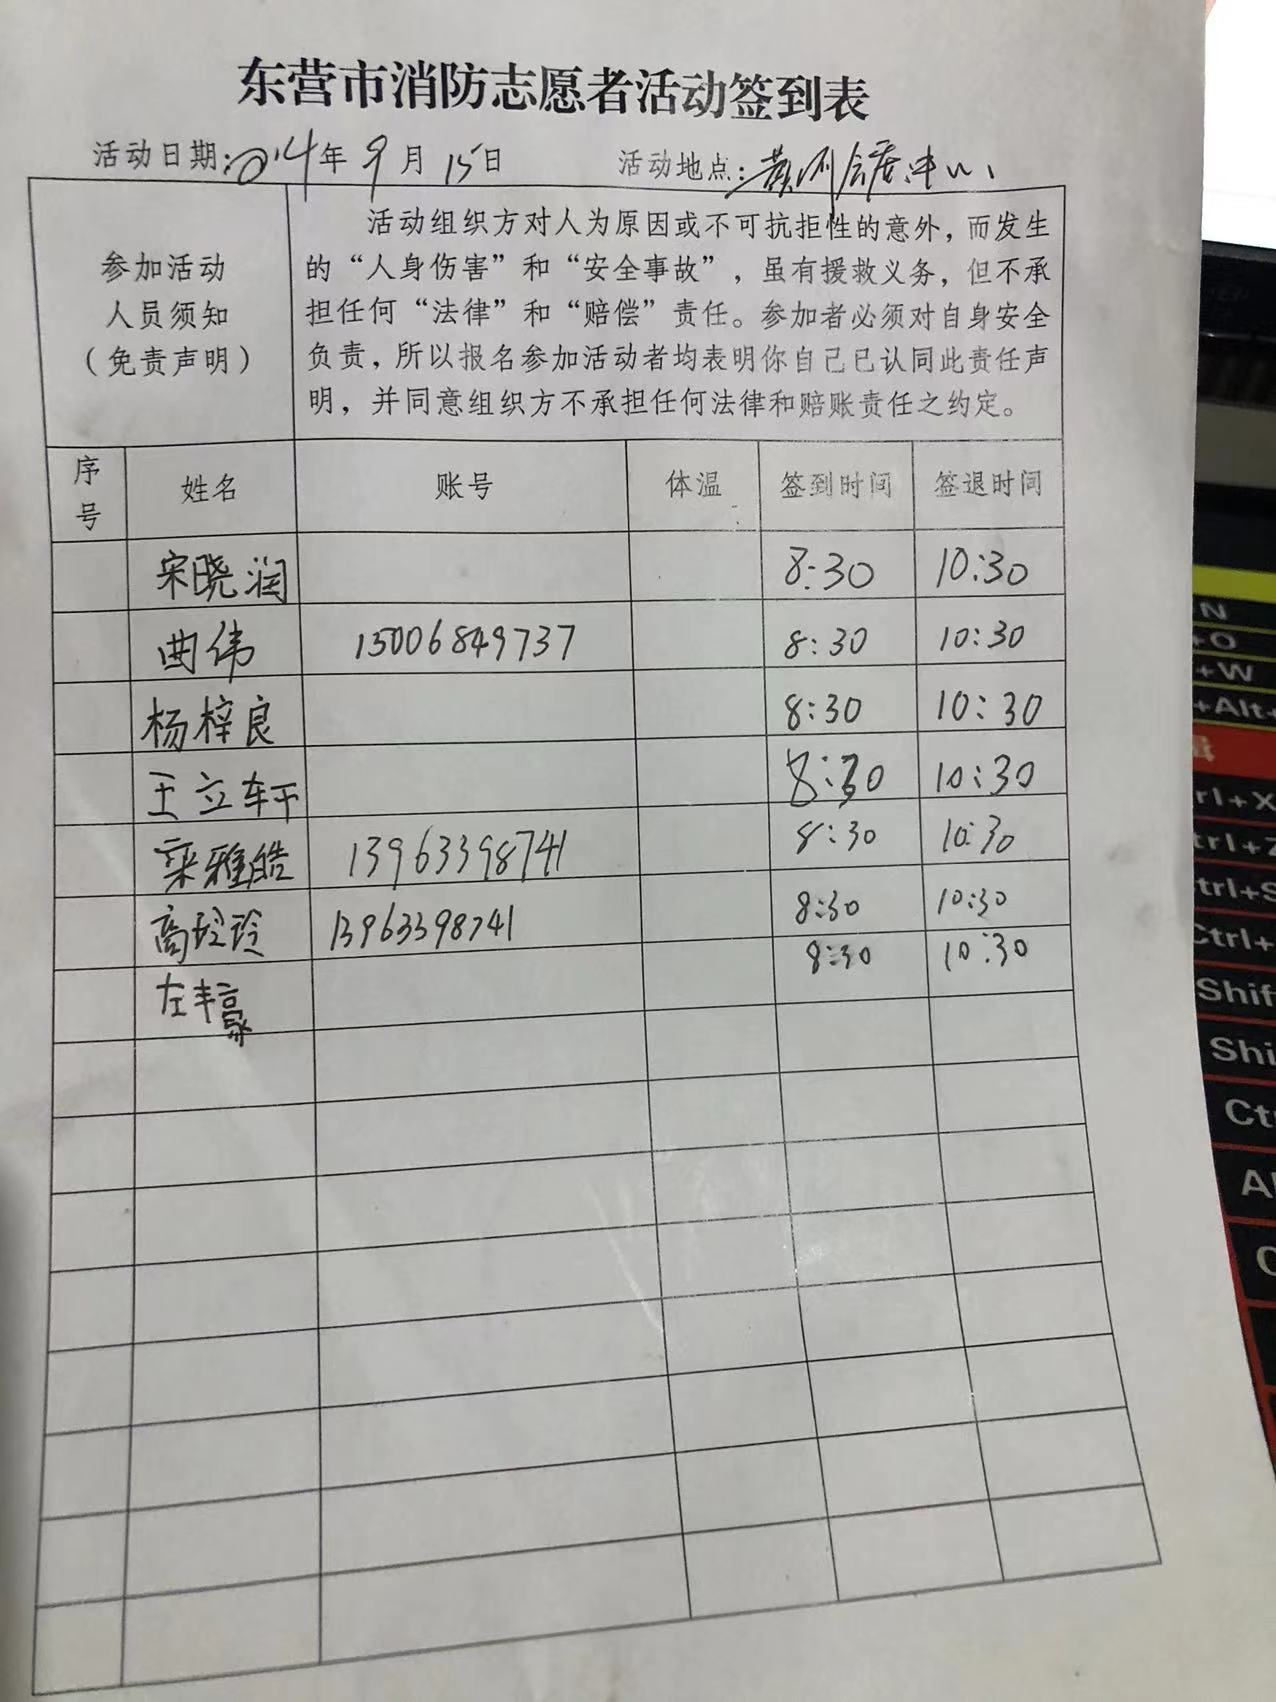 东营市消防志愿者活动签到表
活动日期:2014年9月15日 活动地点:黄河会展中心
参加活动
人员须知
(免责声明)
活动组织方对人为原因或不可抗拒性的意外,而发生
的“人身伤害”和“安全事故”,虽有援救义务,但不承
担任何“法律”和“赔偿”责任。参加者必须对自身安全
负责,所以报名参加活动者均表明你自己已认同此责任声
明,并同意组织方不承担任何法律和赔账责任之约定。
序号 姓名 账号 体温 签到时间 签退时间
宋晓润 8:30 10:30
曲伟 15006849737 8:30 10:30
杨梓良 8:30 10:30
王立轩 8:30 10:30
雅皓 13963398741 8:30 10:30
高玲玲 13963398741 8:30 10:30
左丰豪 8:30 10:30
N
+O
+W
+Alt+
trl+X
trl+Z
trl+S
Ctrl+
Shif
Shi
Ct